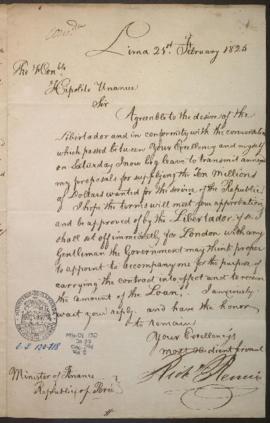 Lima 21st February 1825
The Honble
Hipolito Unanue
Sir
Agreeable to the desire of the
Libertador and in conformity with the conversation
which passed between Your Excellency and myself
on Saturday I now beg leave to transmit annexed
my proposals for supplying the Ten Millions
of Dollars wanted for the service of the Republic.
I hope the terms will meet your approbation
and be approved of by the Libertador, if so I
shall set off immediately for London with any
Gentleman the Government may think proper
to appoint to accompany me for the purpose of
carrying the contract into effect and to receive
the amount of the Loan, I anxiously
wait your reply and have the honor
to remain
Your Excellency's
most obedient servant
Minister of Finance
Republic of Peru